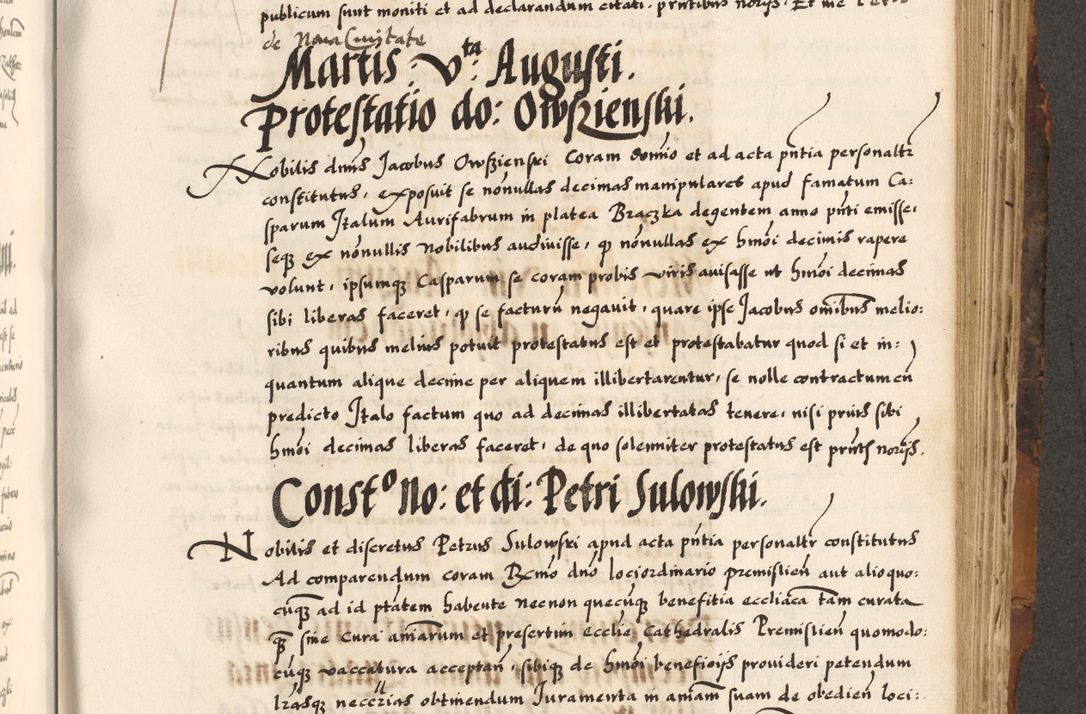 publicum sunt moniti et ad declarandum citati. pñtibus norijs. Et me
de Noua Ciuitate
Martis : vta : Augusti.
Protestatio do: Owszienski.
Nobilis dnus Jacobus Owszienski Coram domio et ad acta pñtia personaltr
constitutus, exposuit se nonullas decimas manipulares apud famatum Ca:
sparum Italum Aurifabrum in platea Braczka degentem anno pñti emisse,
seqꝫ ex nonullis nobilibus audiuisse, qp nonullas ex hmoi decimis rapere
volunt, ipsumqꝫ Casparum se coram probis viris auisasse ut hmoi decimas
sibi liberas faceret, qp se facturu negauit, quare ipse Jacobus omibus melio:
ribus quibus melius potuit protestatus est et protestabatur quod si et in:
quantum alique decime per aliquem illibertarentur, se nolle contractum cu
predicto Italo factum quo ad decimas illibertatas tenere, nisi prius sibi
hmoi decimas liberas faceret, de quo solemniter protestatus est pñtibs norijs.
Constº no: et di: Petri Sulowski.
Nobilis et discretus Petrus Sulowski apud acta pñtia personaltr constitutus
Ad comparendum coram Rxmo dno lociordinario Premislien aut alioquo:
cuqꝫ ad id ptatem habente necnon quecuqꝫ benefitia eccliaca tam curata
qꝫ sine cura amarum et presertim ecclie Cathedralis Premislien quomodo:
cuqꝫ vaccatura acceptan, sibiqꝫ de hmoi beneficijs prouideri petendum
lrasqꝫ neccrias obtinendum Juramenta in amam suam de obedien loci: